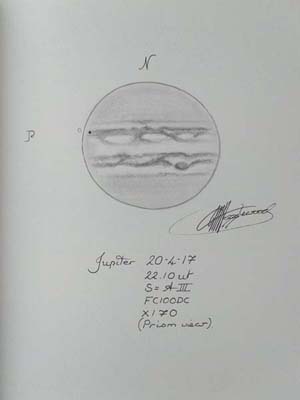 N
P
Jupiter 20-4-17
22.10 ut
S = A III
FC100DC
X170
(Prism view)